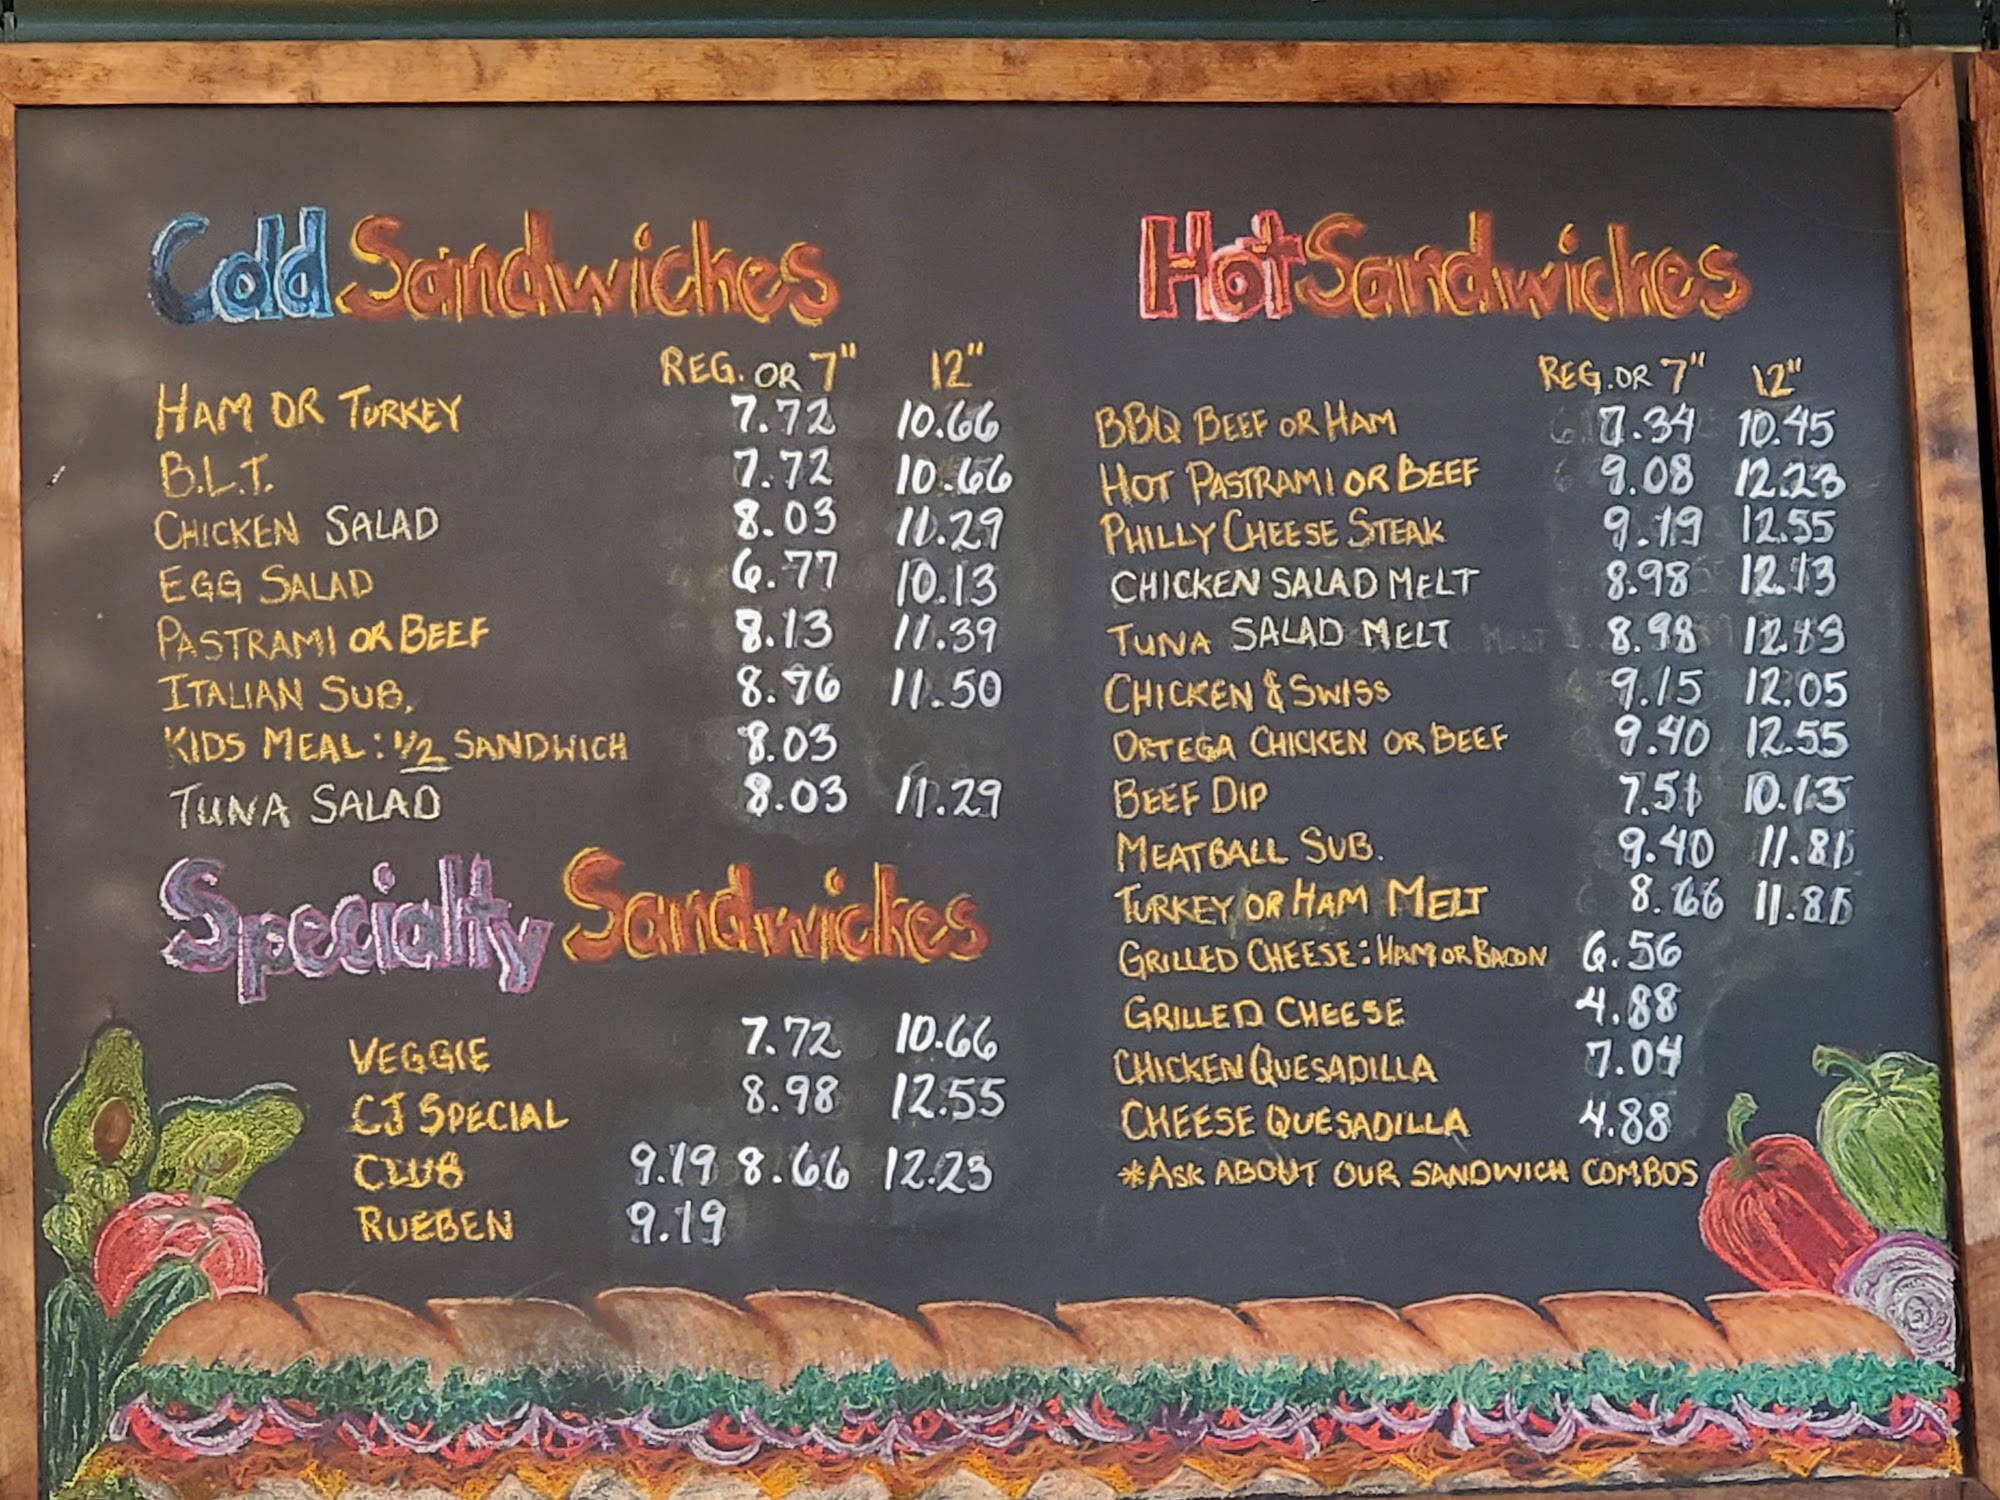 Cold Sandwiches
REG. OR 7" 12"
HAM OR TURKEY 7.72 10.66
B.L.T. 7.72 10.66
CHICKEN SALAD 8.03 11.29
EGG SALAD 6.77 10.13
PASTRAMI OR BEEF 8.13 11.39
ITALIAN SUB. 8.76 11.50
KIDS MEAL: 1/2 SANDWICH 8.03
TUNA SALAD 8.03 11.29
Specialty Sandwiches
VEGGIE 7.72 10.66
CJ SPECIAL 8.98 12.55
CLUB 9.19 8.66 12.23
RUEBEN 9.19
Hot Sandwiches
REG. OR 7" 12"
BBQ BEEF OR HAM 7.34 10.45
HOT PASTRAMI OR BEEF 9.08 12.23
PHILLY CHEESE STEAK 9.19 12.55
CHICKEN SALAD MELT 8.98 12.13
TUNA SALAD MELT 8.98 12.13
CHICKEN & SWISS 9.15 12.05
ORTEGA CHICKEN OR BEEF 9.40 12.55
BEEF DIP 7.51 10.13
MEATBALL SUB. 9.40 11.81
TURKEY OR HAM MELT 8.66 11.81
GRILLED CHEESE: HAM OR BACON 6.56
GRILLED CHEESE 4.88
CHICKEN QUESADILLA 7.04
CHEESE QUESADILLA 4.88
*ASK ABOUT OUR SANDWICH COMBOS